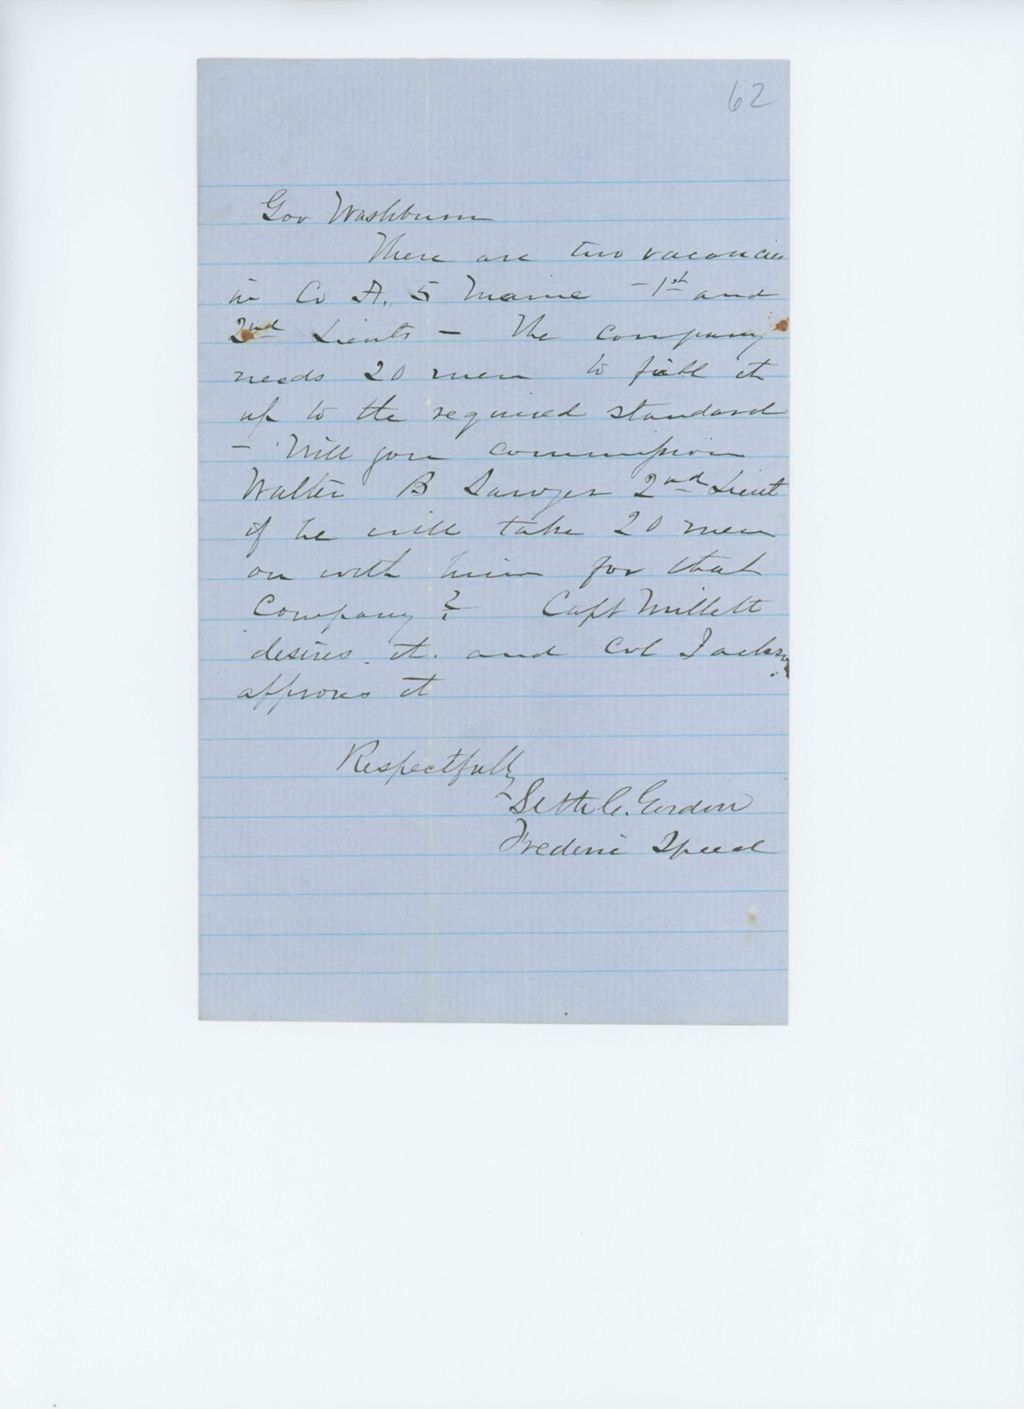 62
Gov Washburn
There are two vacancies
in Co A, 5 Maine - 1st and
2nd Lieuts - The company
needs 20 men to fill it
up to the required standard
- Will you commission
Walter B Sawyer 2nd Lieut
if he will take 20 men
on with him for that
Company? Capt Millett
desires it. and Col Jackson
approves it
Respectfully
Seth C. Gordon
Frederic Speed